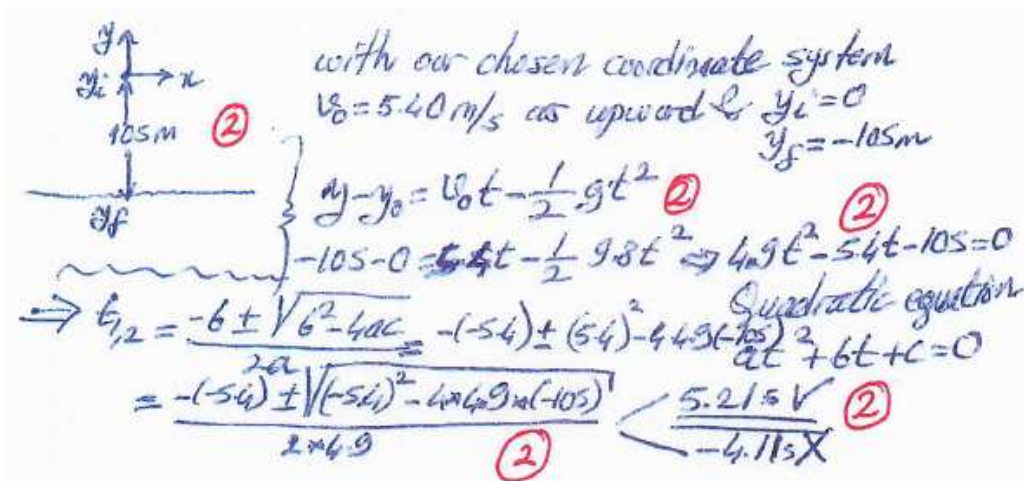 y
y_i → x
105m ②
y_f
with our chosen coordinate system
v₀ = 5.40 m/s as upward & y_i = 0
y_f = -105m
y - y₀ = v₀t - 1/2 gt² ② ②
-105 - 0 = 5.4t - 1/2 9.8t² ⇒ 4.9t² - 5.4t - 105 = 0
Quadratic equation
at² + bt + c = 0
⇒ t₁,₂ = (-b ± √(b² - 4ac)) / 2a = -(-5.4) ± (5.4)² - 4 4.9(-105)
= (-(-5.4) ± √((-5.4)² - 4×4.9×(-105))) / 2×4.9 ② < 5.21s √ ②
-4.11s X